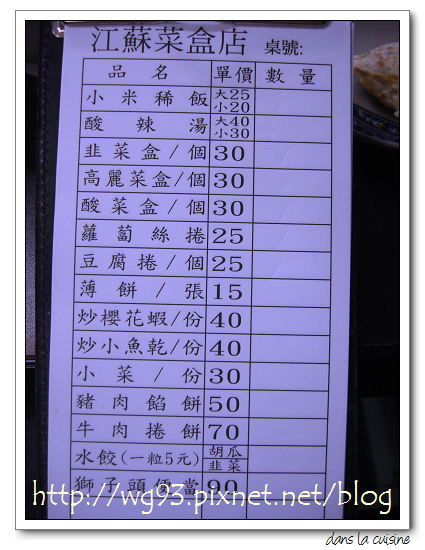 江蘇菜盒店 桌號:
品名 單價 數量
小米稀飯 大25 小20
酸辣湯 大40 小30
韭菜盒/個 30
高麗菜盒/個 30
酸菜盒/個 30
蘿蔔絲捲 25
豆腐捲/個 25
薄餅/張 15
炒櫻花蝦/份 40
炒小魚乾/份 40
小菜/份 30
豬肉餡餅 50
牛肉捲餅 70
水餃(一粒5元) 胡瓜 韭菜
獅子頭便當 90
http://wg93.pixnet.net/blog
dans la cuisine